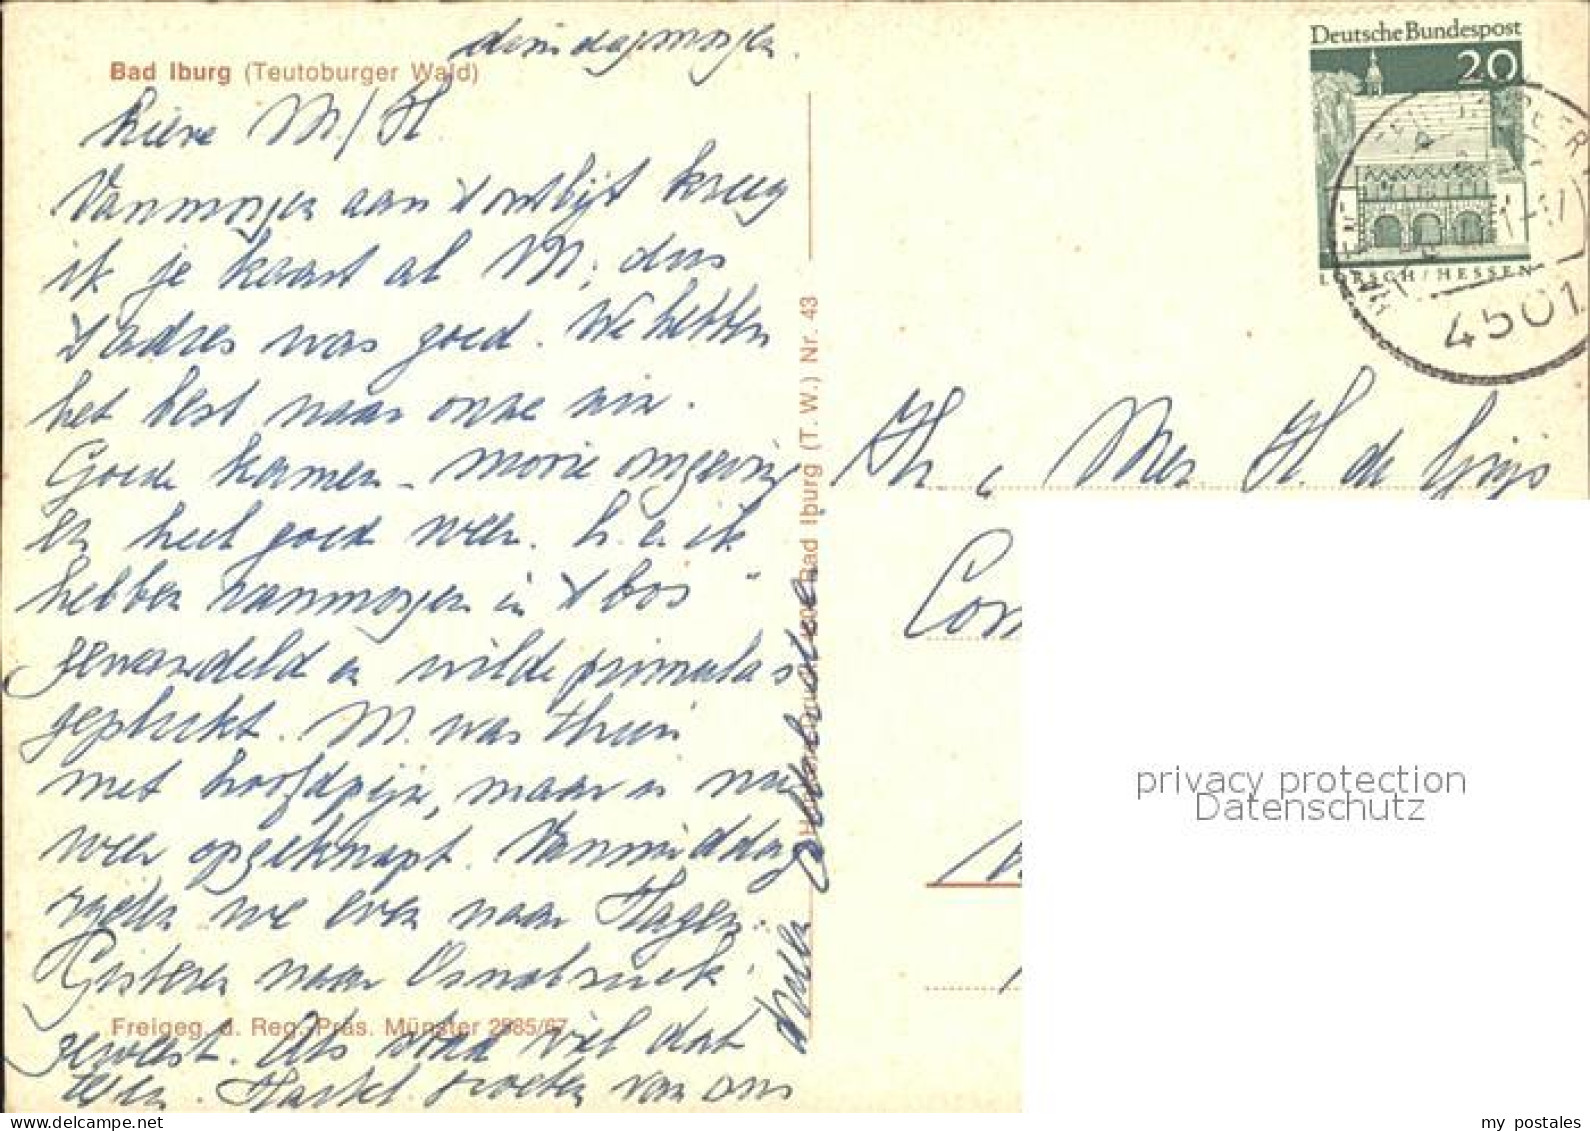 Bad Iburg (Teutoburger Wald)
dinsdagmorgen.
Lieve M/H
Vanmorgen aan 't ontbijt kreeg
ik je kaart al M, dus
't adres was goed. We hebben
het best naar onze zin.
Goede kamer - mooie omgeving
en heel goed weer. H. en ik
hebben vanmorgen in 't bos
gewandeld en wilde primula's
geplukt. M. was thuis
met hoofdpijn, maar is nu
weer opgeknapt. Vanmiddag
rijden we even naar Hagen.
Gisteren naar Osnabrück
geweest. Als stad viel dat
tegen. Hartel. groeten van ons
allen
Freigeg. d. Reg.-Präs. Münster 2585/67
Bad Iburg (T. W.) Nr. 43
Deutsche Bundespost
20
LORSCH/HESSEN
4501
H. de
privacy protection
Datenschutz
my postales